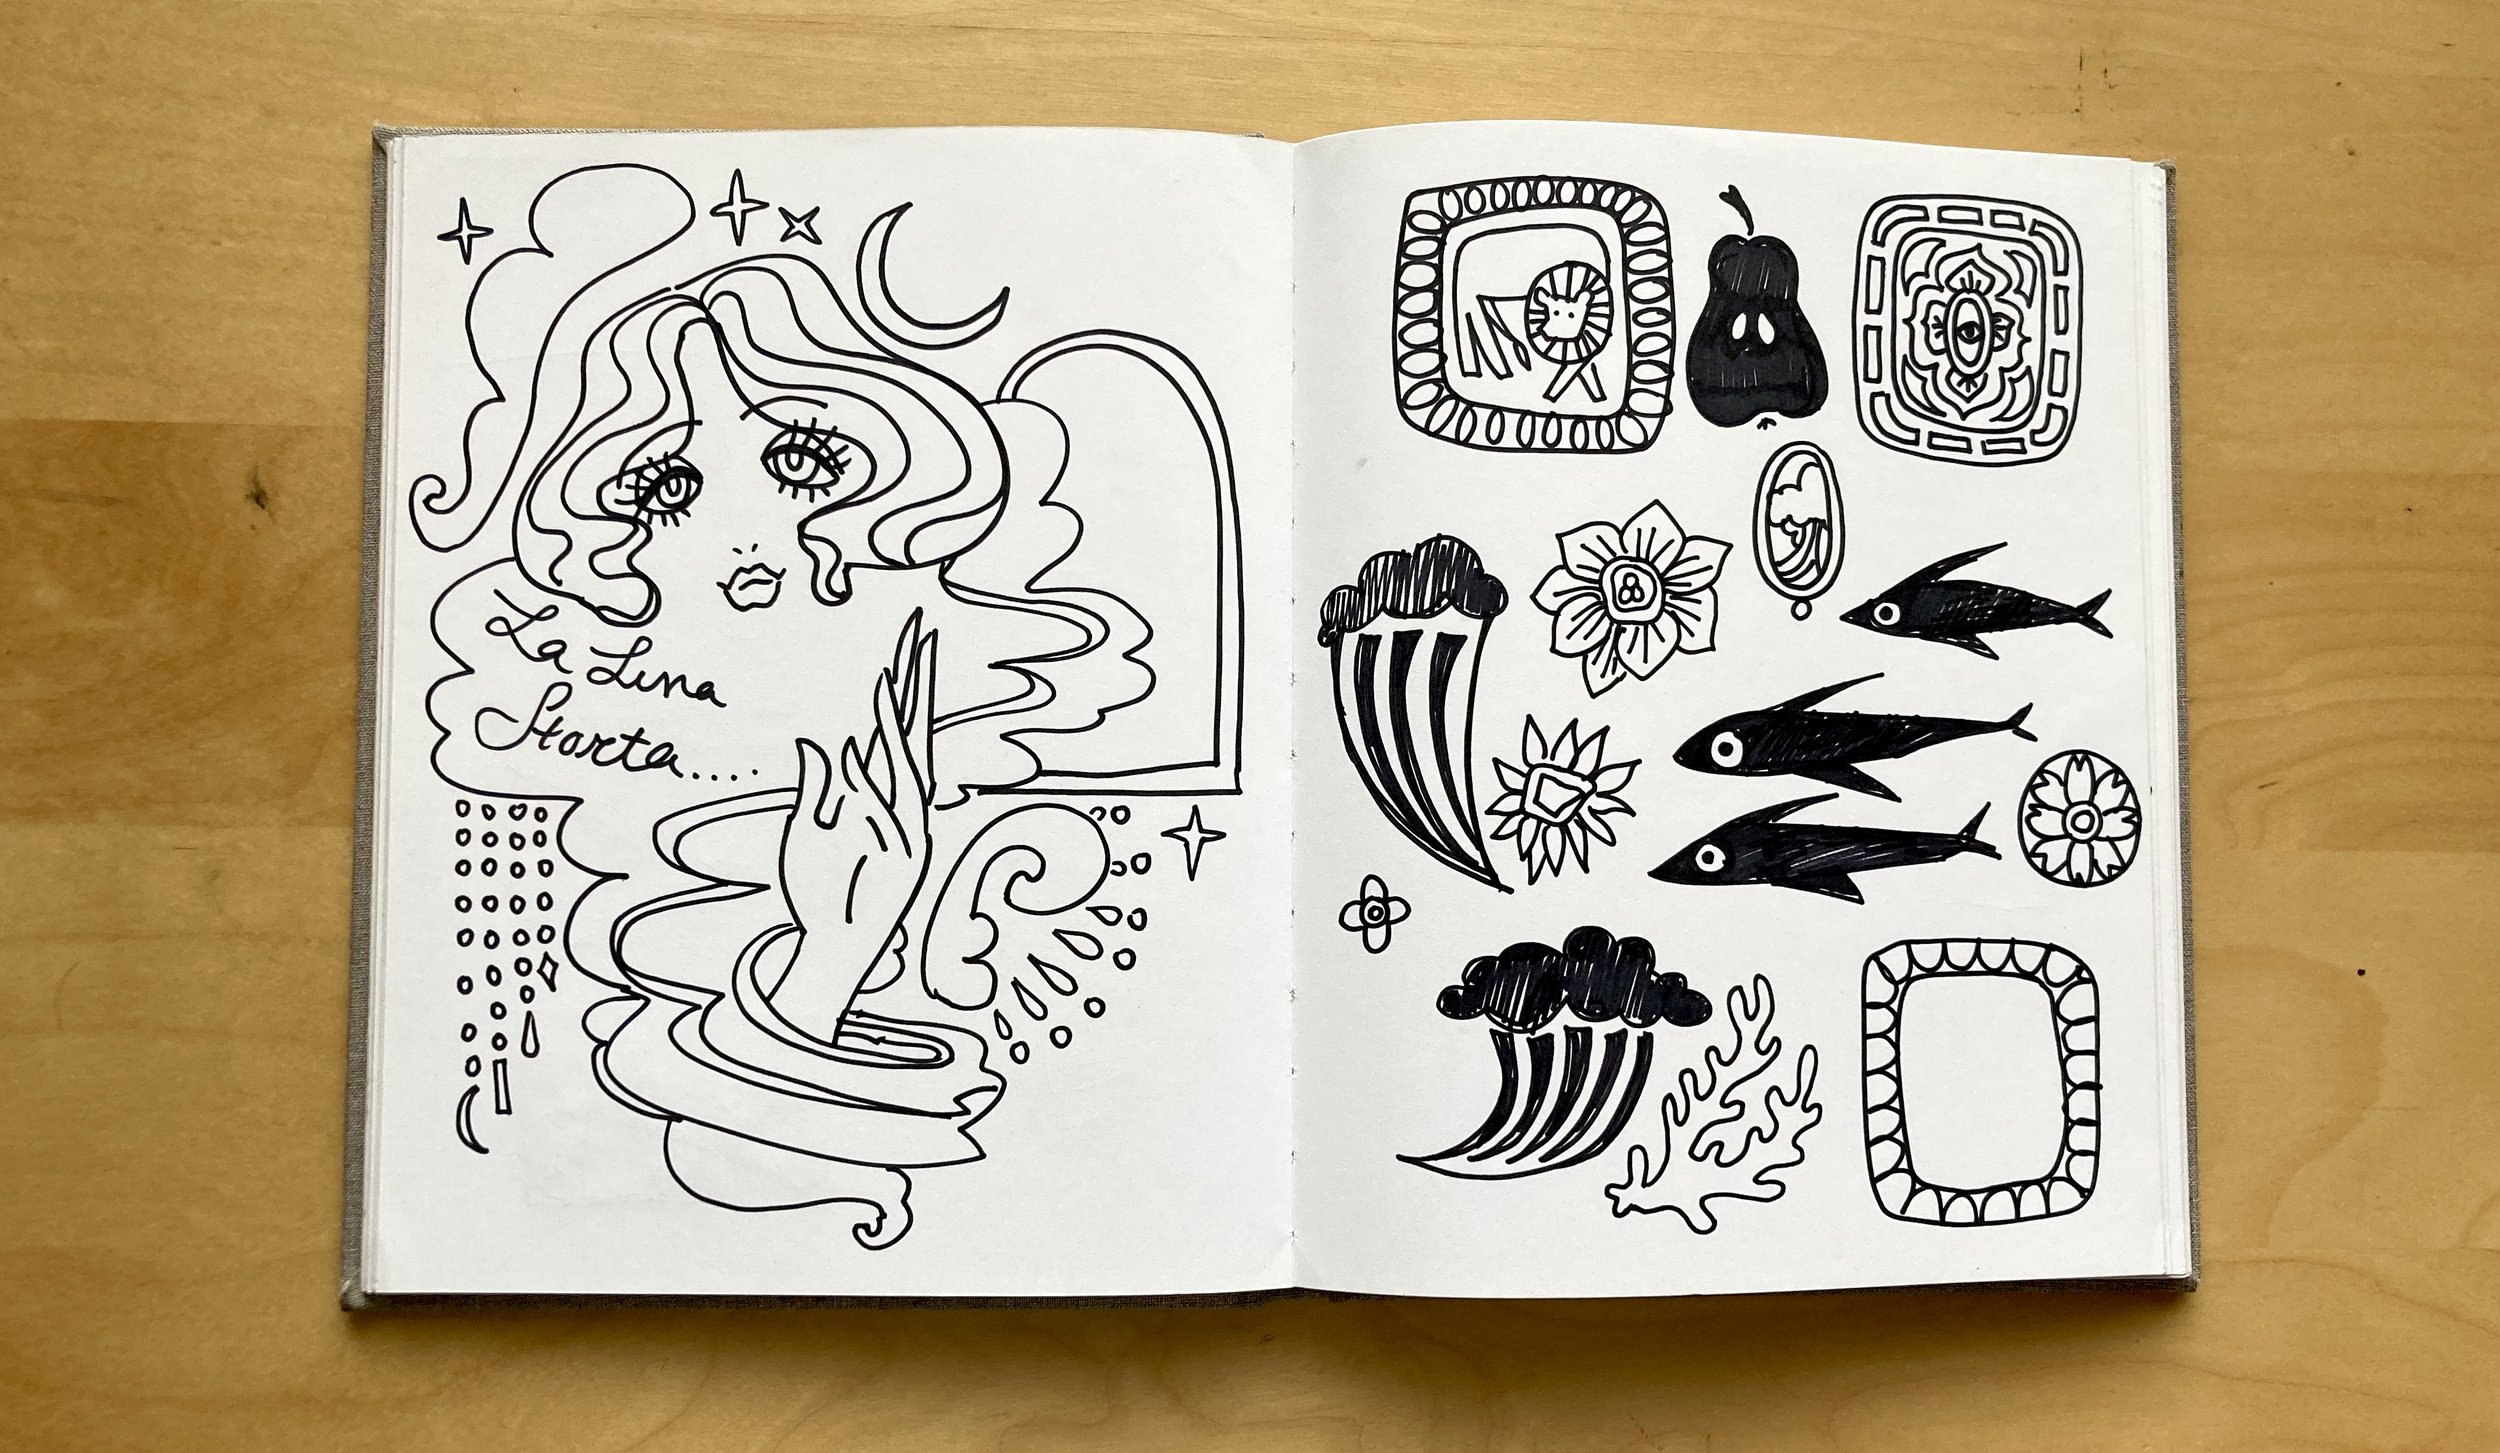 La Luna
Storta....